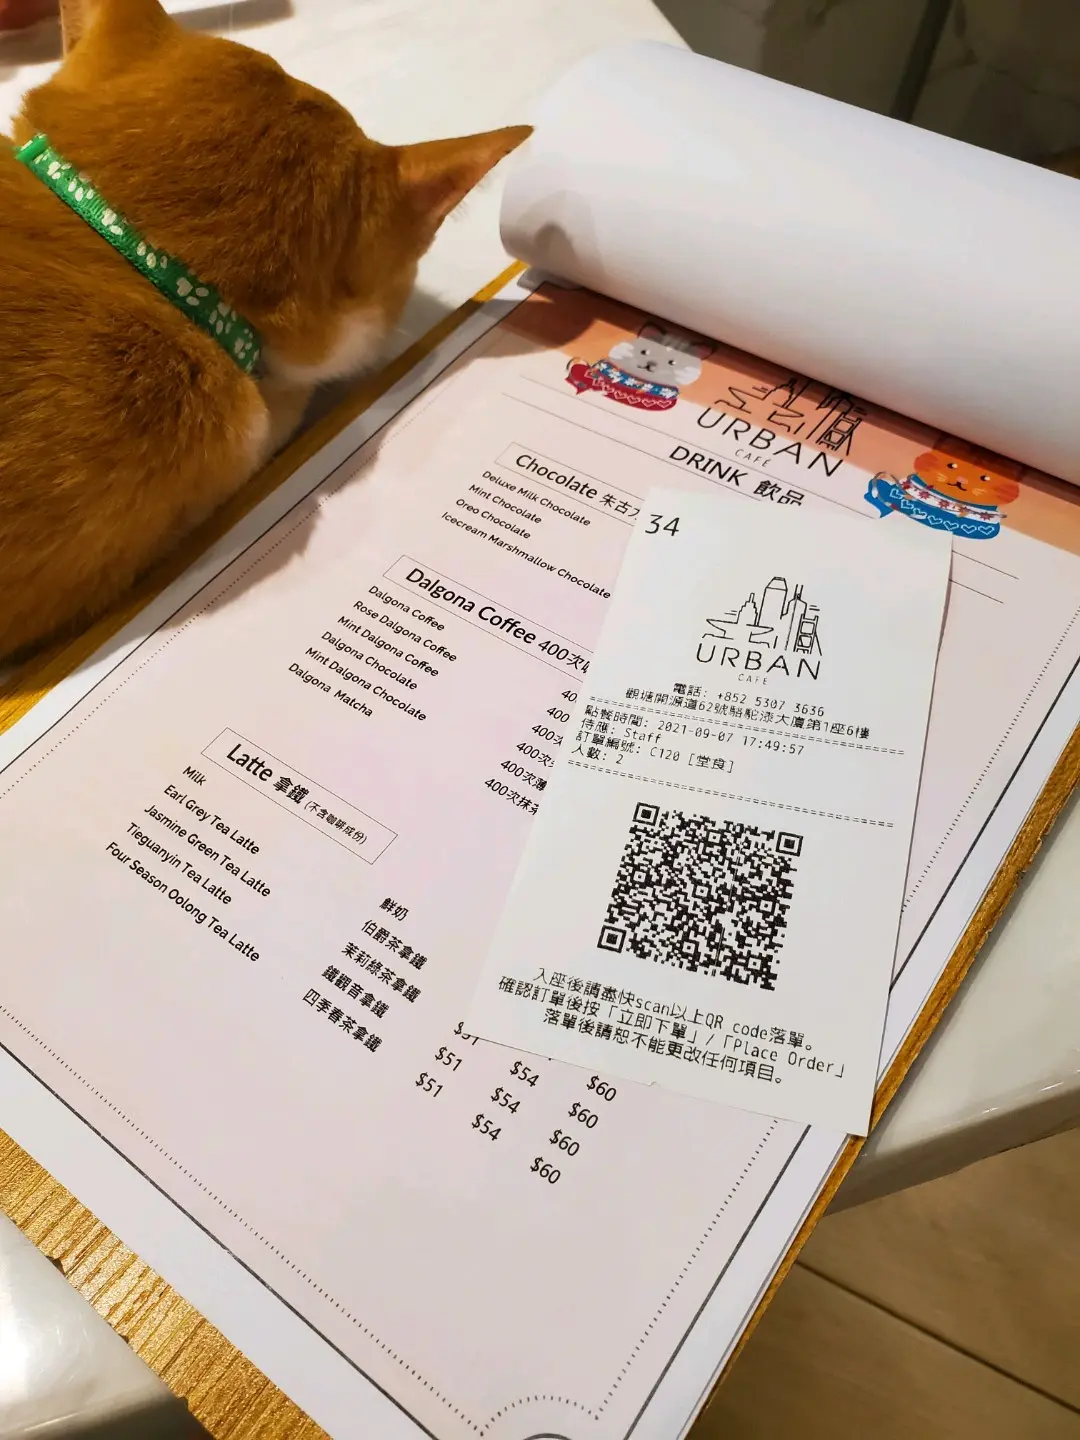 URBAN
CAFÉ
DRINK 飲品
Chocolate 朱古
Deluxe Milk Chocolate
Mint Chocolate
Oreo Chocolate
Icecream Marshmallow Chocolate
Dalgona Coffee 400次
Dalgona Coffee
Rose Dalgona Coffee
Mint Dalgona Coffee
Dalgona Chocolate
Mint Dalgona Chocolate
Dalgona Matcha
40
400
400次
400次
400次薄
400次抹茶
Latte 拿鐵 (不含咖啡成份)
Milk
Earl Grey Tea Latte
Jasmine Green Tea Latte
Tieguanyin Tea Latte
Four Season Oolong Tea Latte
鮮奶
伯爵茶拿鐵
茉莉綠茶拿鐵
鐵觀音拿鐵
四季春茶拿鐵
$51 $54 $60
$51 $54 $60
$51 $54 $60
$60
34
URBAN
CAFE
電話: +852 5307 3636
觀塘開源道62號駱駝漆大廈第1座6樓
點餐時間: 2021-09-07 17:49:57
侍應: Staff
訂單編號: C120 [堂食]
人數: 2
入座後請盡快scan以上QR code落單。
確認訂單後按「立即下單」/「Place Order」
落單後請恕不能更改任何項目。